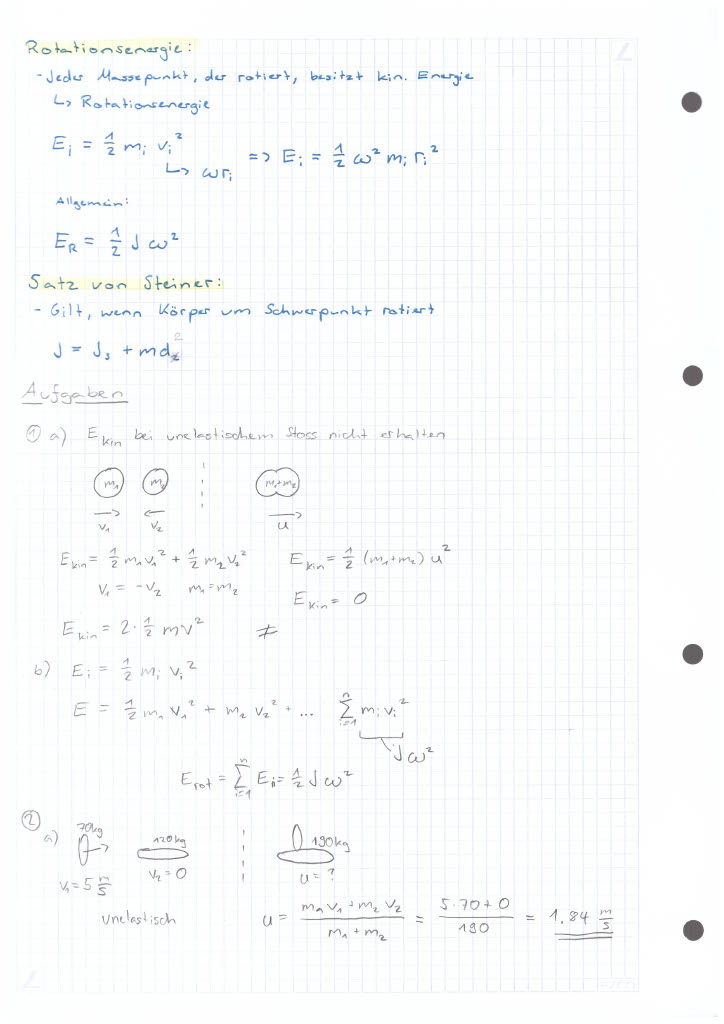 Rotationsenergie:
- Jeder Massepunkt, der rotiert, besitzt kin. Energie
↳ Rotationsenergie
E_i = 1/2 m_i v_i² => E_i = 1/2 ω² m_i r_i²
↳ ω r_i
Allgemein:
E_R = 1/2 J ω²
Satz von Steiner:
- Gilt, wenn Körper um Schwerpunkt rotiert
J = J_s + md²
Aufgaben
① a) E_kin bei unelastischem Stoss nicht erhalten
m₁ m₂ m₁+m₂
v₁ v₂ u
E_kin = 1/2 m₁v₁² + 1/2 m₂v₂² E_kin = 1/2 (m₁+m₂) u²
v₁ = -v₂ m₁=m₂
E_kin = 0
E_kin = 2·1/2 mv² ≠
b) E_i = 1/2 m_i v_i²
E = 1/2 m₁ v₁² + m₂ v₂² + ... Σ_{i=1}^{n} m_i v_i²
Jω²
E_rot = Σ_{i=1}^{n} E_i = 1/2 J ω²
②
a) 70kg 120kg 190kg
v₁ = 5 m/s v₂ = 0 u = ?
unelastisch u = (m₁ v₁ + m₂ v₂)/(m₁ + m₂) = (5·70+0)/190 = 1.84 m/s